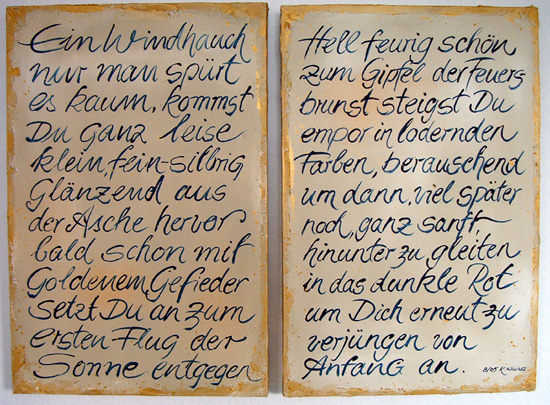 Ein Windhauch
nur man spürt
es kaum, kommst
Du ganz leise
klein, fein-silbrig
Glänzend aus
der Asche hervor
bald schon mit
Goldenem Gefieder
Setzt Du an zum
ersten Flug der
Sonne entgegen
Hell feurig schön
zum Gipfel der Feuers
brunst steigst Du
empor in lodernden
Farben, berauschend
um dann, viel später
noch, ganz sanft
hinunter zu gleiten
in das dunkle Rot
um Dich erneut zu
verjüngen von
Anfang an.
8/05